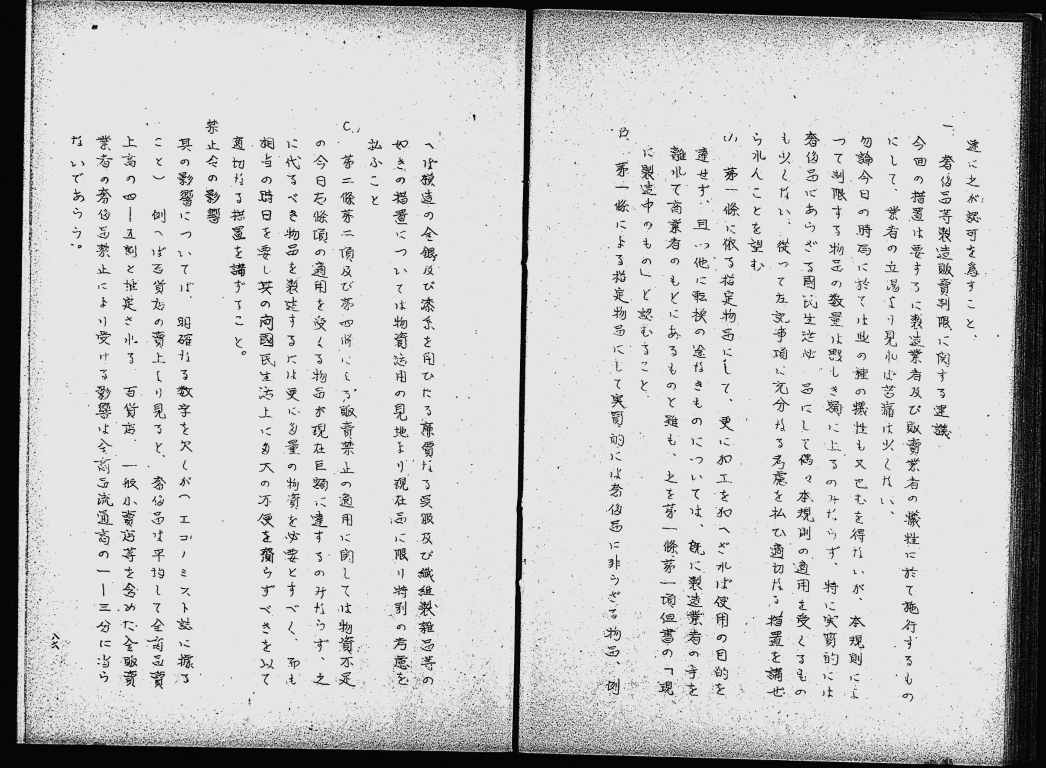 速に之が認可を為すこと、
一、奢侈品等製造販賣制限に関する建議
今回の措置は要するに製造業者及び販賣業者の犠牲に於て施行するもの
にして、業者の立場より見れば苦痛は少くない、
勿論今日の時局に於ては此の種の犠牲も又已むを得ないが、本規則によ
つて制限する物品の数量は夥しき額に上るのみならず、特に実質的には
奢侈品にあらざる國民生活必 品にして偶々本規則の適用を受くるもの
も少くない、從つて左記事項に充分なる考慮を払ひ適切なる措置を講せ
られんことを望む
第一條に依る指定物品にして、更に加工を加へざれば使用の目的を
達せず、且つ他に転換の途なきものについては、既に製造業者の手を
離れて商業者のもとにあるものと雖も、之を第一條第一項但書の「現
に製造中のもの」と認むること、
B、第一條による指定物品にして実質的には奢侈品に非らざる物品、例
へば模造の金銀及び漆糸を用ひたる廉價なる呉服及び繊維製雑品等の
如きの措置については物資活用の見地より現在品に限り特別の考慮を
払ふこと
C、第二條第二項及び第四條による販賣禁止の適用に関しては物資不足
の今日右條項の適用を受くる物品が現在巨額に達するのみならず、之
に代るべき物品を製造するには更に多量の物資を必要とすべく、而も
相当の時日を要し其の間國民生活上に多大の不便を齎らすべきを以て
適切なる措置を講ずること。
禁止令の影響
其の影響については、明確なる数字を欠くが（エコノミスト誌に據る
こと）例へば百貨店の賣上より見ると、奢侈品は平均して全商品賣
上高の四—五割と推定される 百貨店、一般小賣店等を含めた全販賣
業者の奢侈品禁止により受ける影響は全商品流通高の一—三分に当ら
ないであらう。